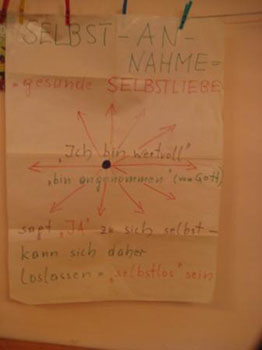 SELBST-AN-
NAHME=
"gesunde SELBSTLIEBE
"Ich bin wertvoll"
"bin angenommen" (von Gott)
sagt "JA" zu sich selbst -
kann sich daher
loslassen = "selbstlos" sein